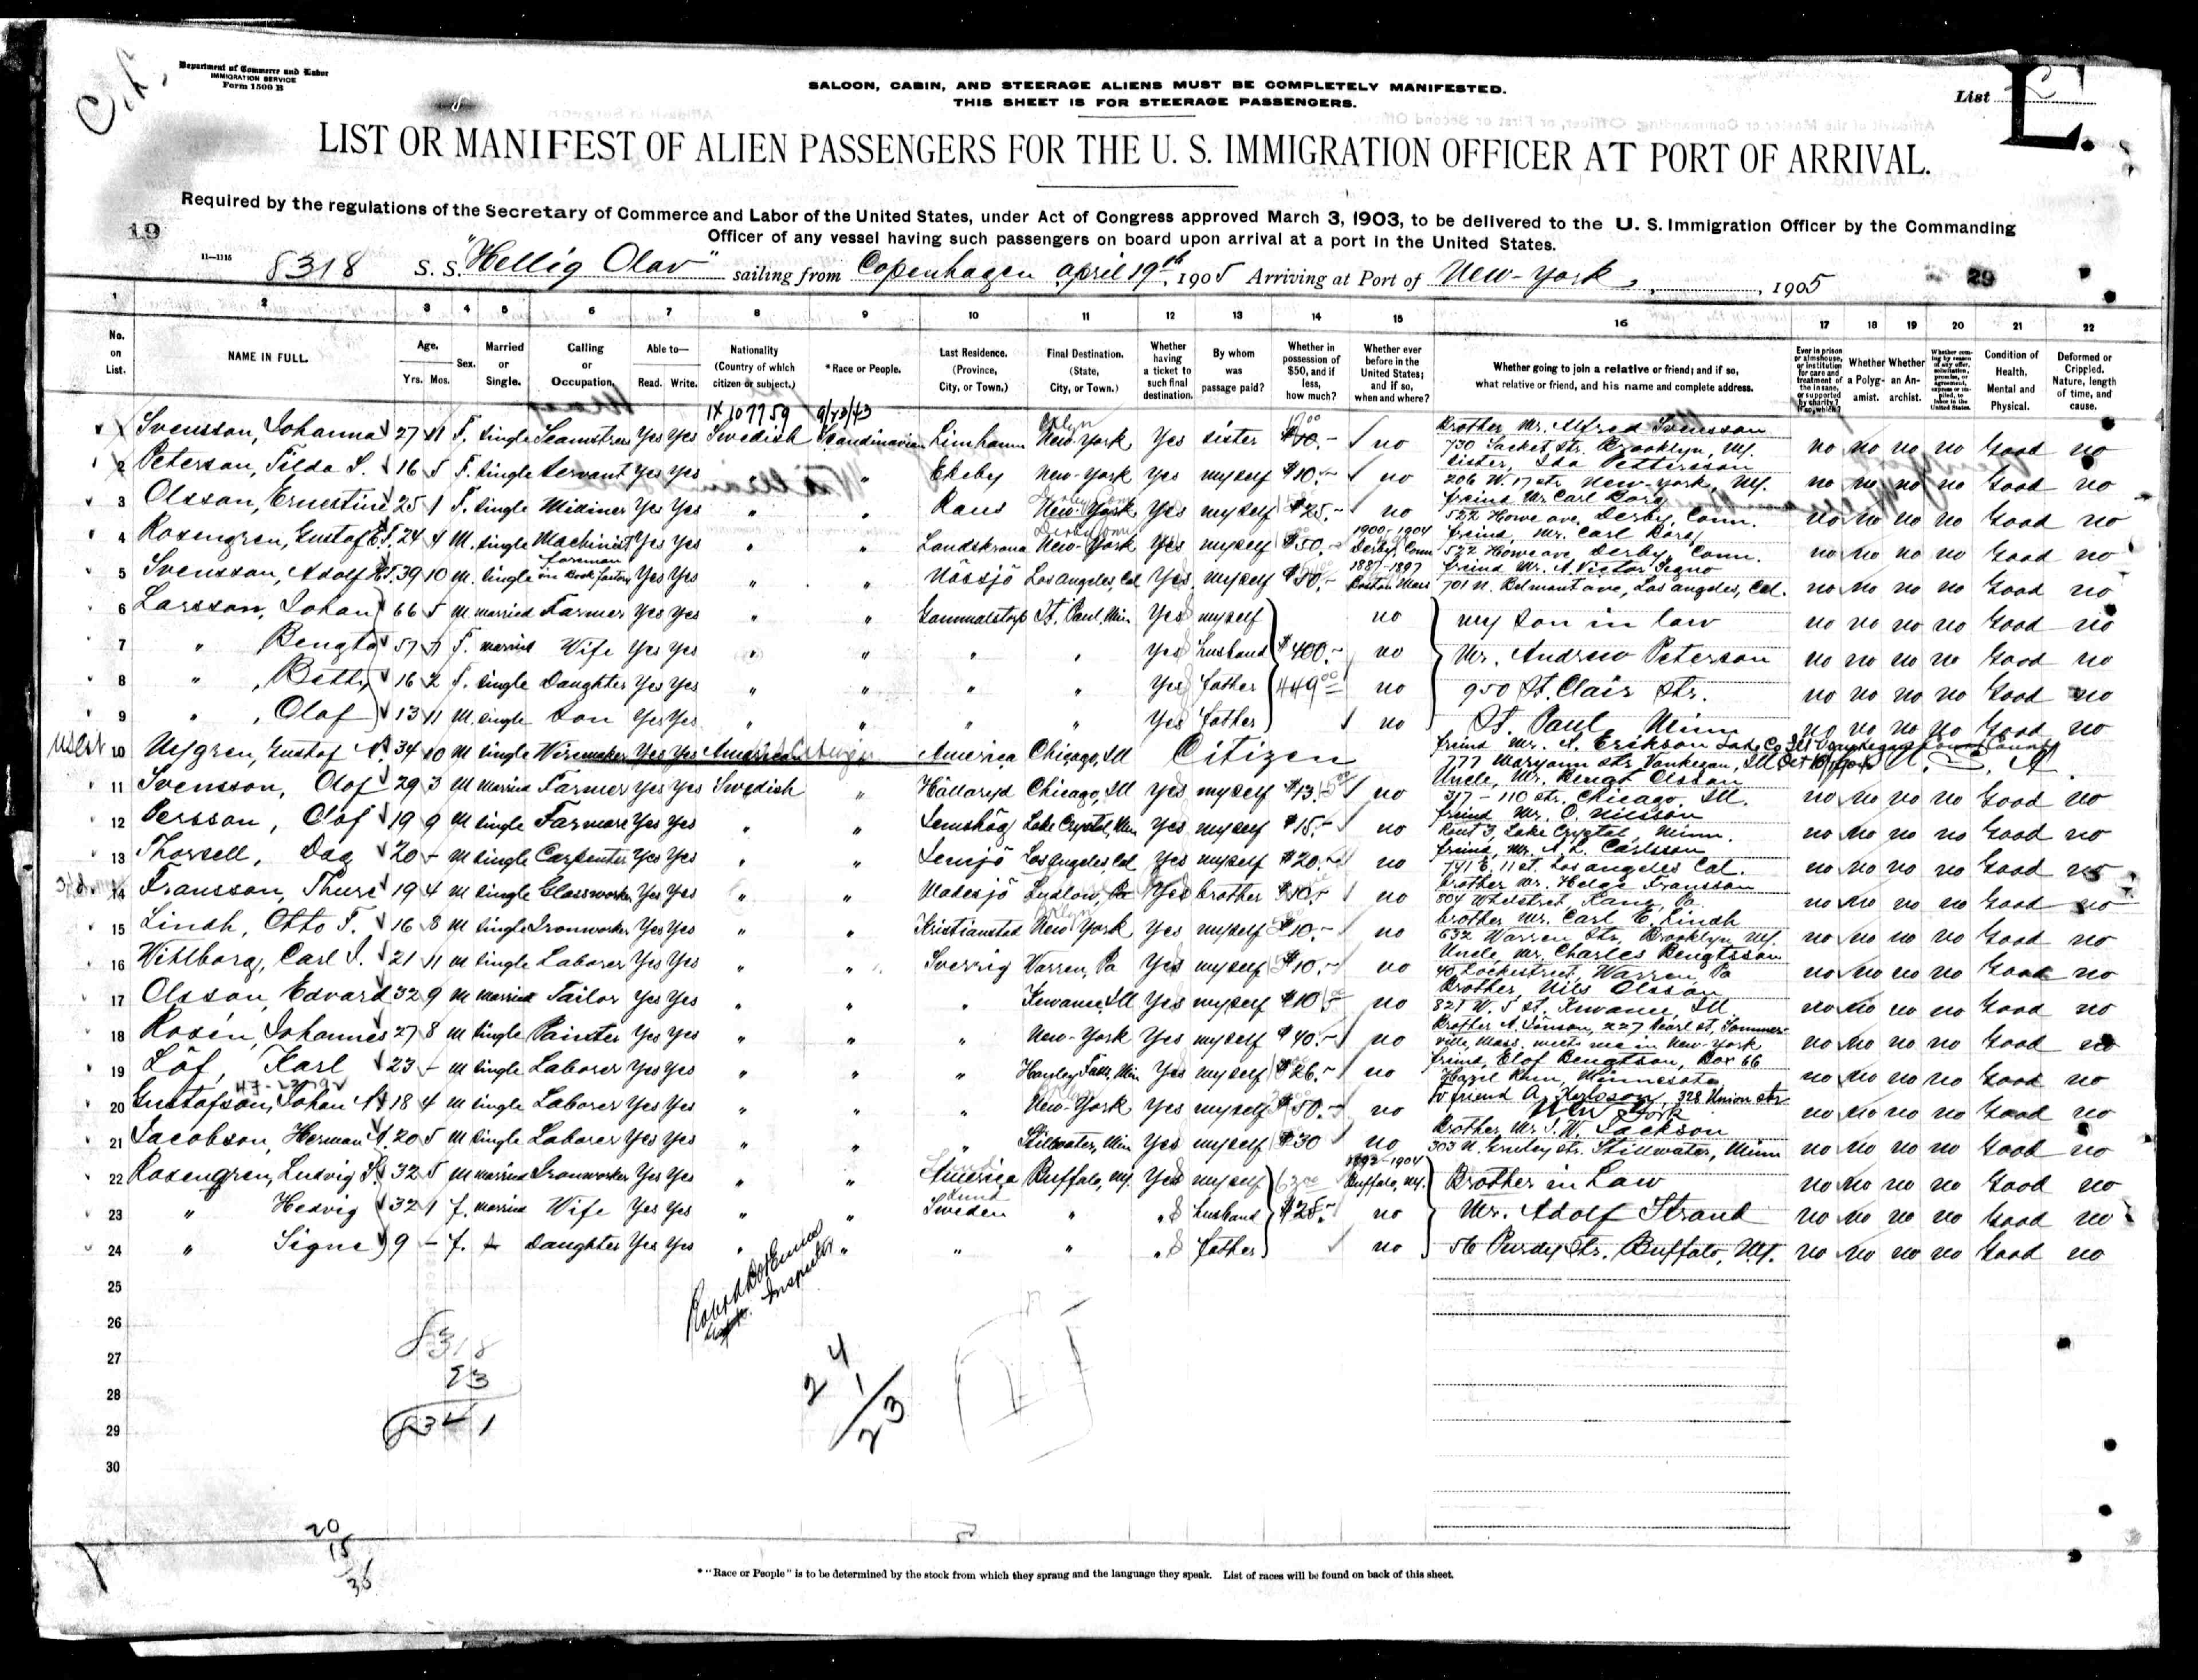 Department of Commerce and Labor
IMMIGRATION SERVICE
Form 1500 B
SALOON, CABIN, AND STEERAGE ALIENS MUST BE COMPLETELY MANIFESTED.
THIS SHEET IS FOR STEERAGE PASSENGERS.
List
E.
LIST OR MANIFEST OF ALIEN PASSENGERS FOR THE U. S. IMMIGRATION OFFICER AT PORT OF ARRIVAL.
Required by the regulations of the Secretary of Commerce and Labor of the United States, under Act of Congress approved March 3, 1903, to be delivered to the U. S. Immigration Officer by the Commanding
19
Officer of any vessel having such passengers on board upon arrival at a port in the United States.
11—1115 8318 S. S. "Hellig Olav" sailing from Copenhagen april 19th, 1905 Arriving at Port of New-York, , 1905
29
1 2 3 4 5 6 7 8 9 10 11 12 13 14 15 16 17 18 19 20 21 22
No. on List.
NAME IN FULL.
Age. Yrs. Mos.
Sex.
Married or Single.
Calling or Occupation.
Able to— Read. Write.
Nationality (Country of which citizen or subject.)
*Race or People.
Last Residence. (Province, City, or Town.)
Final Destination. (State, City, or Town.)
Whether having a ticket to such final destination.
By whom was passage paid?
Whether in possession of $50, and if less, how much?
Whether ever before in the United States; and if so, when and where?
Whether going to join a relative or friend; and if so, what relative or friend, and his name and complete address.
Ever in prison or almshouse, or institution for care and treatment of the insane, or supported by charity? If so, which?
Whether a Polygamist.
Whether an Anarchist.
Condition of Health, Mental and Physical.
Deformed or Crippled. Nature, length of time, and cause.
1X107759 9/23/43
1 Svensson, Johanna 27 11 F. Single Seamstress Yes Yes Swedish Scandinavian Limhamn New-York Yes sister no Brother Mr. Alfred Svensson 730 Sacket Str. Brooklyn, NY. no no no no Good no
2 Peterson, Tilda S. 16 5 F. Single Servant Yes Yes " Ekeby New-York Yes myself $10.- no sister, Ida Pettersson 206 W. 17 str New-York, NY. no no no no Good no
3 Olsson, Ernestine 25 1 F. Single Milliner Yes Yes " " Raus Derby Conn New York Yes myself $25.- no freind Mr Carl Borg 522 Howe ave. Derby, Conn. no no no no Good no
4 Rosengren, Gustaf 24 4 M. Single Machinist Yes Yes " " Landskrona Derby Conn New-York Yes myself $50.- 1900-1904 Derby, Conn freind, Mr. Carl Borg 522 Howe ave, Derby, Conn. no no no no Good no
5 Svensson, Adolf 39 10 M. Single foreman in Book factory Yes Yes " " Nässjö Los Angeles, Cal Yes myself $50.- 1887-1897 Boston Mass freind Mr. A. Victor Segno 701 N. Belmont ave, Los Angeles, Cal. no no no no Good no
6 Larsson, Johan 66 5 M married Farmer Yes Yes " " Gammalstorp St. Paul, Min Yes myself no my son in law no no no no Good no
7 " Bengta 57 F. married Wife Yes Yes " " " " Yes Husband $400.- no Mr. Andrew Peterson no no no no Good no
8 " Betty 16 2 F. Single Daughter Yes Yes " " " " Yes father 449 00 no 950 St. Clair Str. no no no no Good no
9 " , Olof 13 11 M. Single Son Yes Yes " " " " Yes father no St. Paul Minn no no no no Good no
10 Nygren, Gustaf 34 10 M Single Wiremaker Yes Yes American America Chicago, Ill Citizen freind Mr. A. Erikson 777 Maryann str
11 Svensson, Olof 29 3 M married Farmer Yes Yes Swedish " Hällaryd Chicago, Ill Yes myself $13.- no Uncle, Mr. Bengt Olsson 317 - 110 str. Chicago, Ill. no no no no Good no
12 Persson, Olof 19 9 M Single Farmer Yes Yes " " Jemshög Lake Crystal, Min Yes myself $15.- no freind Mr. O. Nilsson Rout 3, Lake Crystal, Minn. no no no no Good no
13 Thorsell, Dag 20 - M Single Carpenter Yes Yes " " Los Angeles, Cal Yes myself $20.- no freind, Mr. A. L. Carlsson 741 E. 11 st. Los Angeles Cal. no no no no Good no
14 Fransson, Thure 19 4 M Single Glassworker Yes Yes " " Madesjö Ludlow, Pa Yes brother $10.- no Brother Mr. Helge Fransson no no no no Good no
15 Lindh, Otto F. 16 8 M Single Ironworker Yes Yes " " Kristianstad New York Yes myself $10.- no brother Mr. Carl E. Lindh 632 Warren Str, Brooklyn NY. no no no no Good no
16 Wihlborg, Carl J. 21 11 M Single Laborer Yes Yes " " Sverrig Warren, Pa Yes myself $10.- no Uncle, Mr. Charles Bengtsson Warren, Pa no no no no Good no
17 Olsson, Edvard 32 9 M married Tailor Yes Yes " " " Kewanee, Ill Yes myself $10.- no Brother, Nils Olsson 821 W. 5 st. Kewanee, Ill. no no no no Good no
18 Rosén, Johannes 27 8 M Single Painter Yes Yes " " " New-York Yes myself $40.- no Brother A. Jonson, 227 Pearl st. Sommerville, Mass. meets me in New-York no no no no Good no
19 Löf, Karl 23 - M Single Laborer Yes Yes " " " Hanley Falls, Min Yes myself $26.- no freind, Elof Bengtson, Box 66 Hazel Run, Minnesota no no no no Good no
20 Gustafson, Johan 18 4 M Single Laborer Yes Yes " " " New-York Yes myself $50.- no to friend 328 Union str New York no no no no Good no
21 Jacobson, Herman 20 5 M Single Laborer Yes Yes " " " Stillwater, Min Yes myself $30 no Brother Mr. J. W. Jackson 303 N. Greeley str. Stillwater, Minn no no no no Good no
22 Rosengren, Ludvig 32 5 M married Ironworker Yes Yes " " America Buffalo, NY. Yes myself 1892-1904 Buffalo, NY. Brother in Law no no no no Good no
23 " Hedvig 32 1 f. married Wife Yes Yes " " Lund Sweden " " husband $28.- no Mr. Adolf Strand no no no no Good no
24 " Signe 9 - f. Daughter Yes Yes " " " " " father no 56 Purdy Str. Buffalo, NY. no no no no Good no
25
26
27
28
29
30
Inspector
8318
23
8341
24
1
23
20
15
35
* "Race or People" is to be determined by the stock from which they sprang and the language they speak. List of races will be found on back of this sheet.